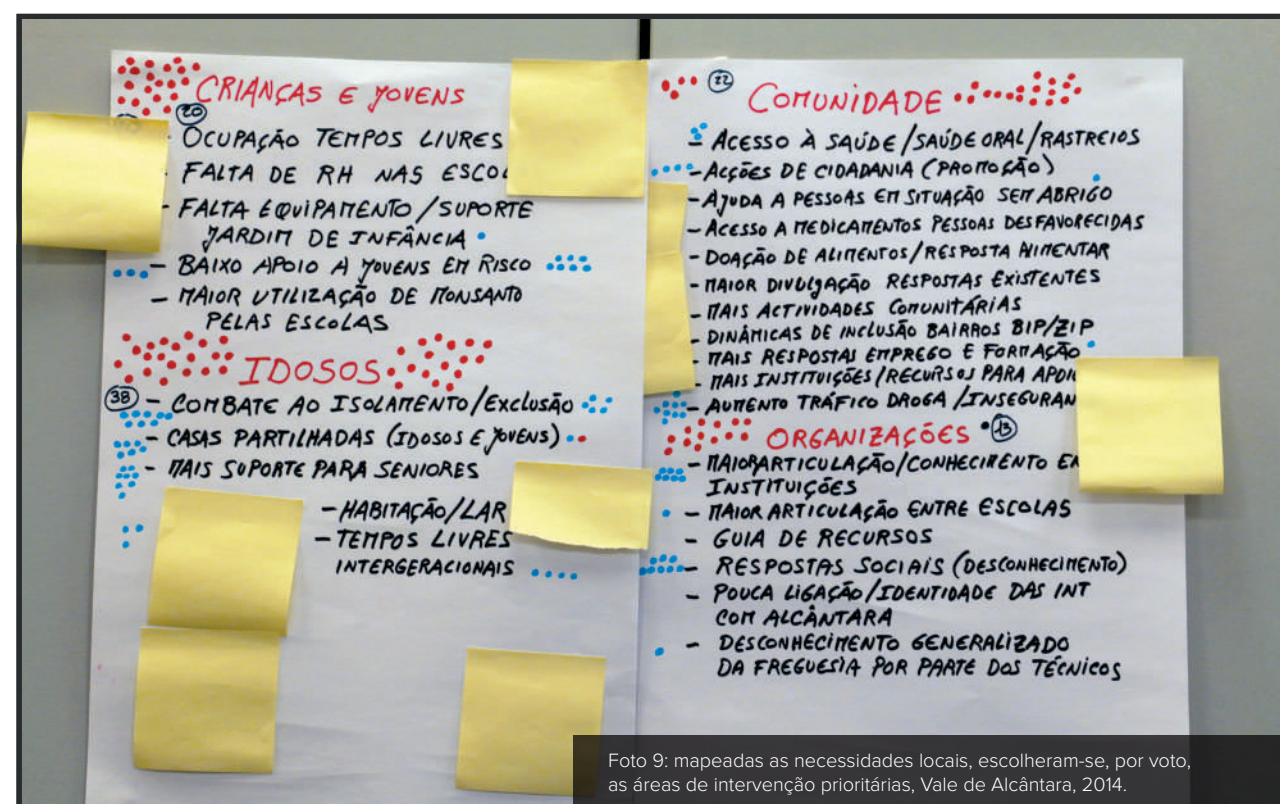 CRIANÇAS E JOVENS
20
- OCUPAÇÃO TEMPOS LIVRES
- FALTA DE RH NAS ESCOL
- FALTA EQUIPAMENTO/SUPORTE
JARDIM DE INFÂNCIA
- BAIXO APOIO A JOVENS EM RISCO
- MAIOR UTILIZAÇÃO DE MONSANTO
PELAS ESCOLAS
IDOSOS
38 - COMBATE AO ISOLAMENTO/EXCLUSÃO
- CASAS PARTILHADAS (IDOSOS E JOVENS)
- MAIS SUPORTE PARA SENIORES
- HABITAÇÃO/LAR
- TEMPOS LIVRES
INTERGERACIONAIS
22
COMUNIDADE
- ACESSO À SAÚDE/SAÚDE ORAL/RASTREIOS
- ACÇÕES DE CIDADANIA (PROMOÇÃO)
- AJUDA A PESSOAS EM SITUAÇÃO SEM ABRIGO
- ACESSO A MEDICAMENTOS PESSOAS DESFAVORECIDAS
- DOAÇÃO DE ALIMENTOS/RESPOSTA ALIMENTAR
- MAIOR DIVULGAÇÃO RESPOSTAS EXISTENTES
- MAIS ACTIVIDADES COMUNITÁRIAS
- DINÂMICAS DE INCLUSÃO BAIRROS BIP/ZIP
- MAIS RESPOSTAS EMPREGO E FORMAÇÃO
- MAIS INSTITUIÇÕES/RECURSOS PARA APOIO
- AUMENTO TRÁFICO DROGA/INSEGURAN
ORGANIZAÇÕES 13
- MAIOR ARTICULAÇÃO/CONHECIMENTO EN
INSTITUIÇÕES
- MAIOR ARTICULAÇÃO ENTRE ESCOLAS
- GUIA DE RECURSOS
- RESPOSTAS SOCIAIS (DESCONHECIMENTO)
- POUCA LIGAÇÃO/IDENTIDADE DAS INT
COM ALCÂNTARA
- DESCONHECIMENTO GENERALIZADO
DA FREGUESIA POR PARTE DOS TÉCNICOS
Foto 9: mapeadas as necessidades locais, escolheram-se, por voto,
as áreas de intervenção prioritárias, Vale de Alcântara, 2014.